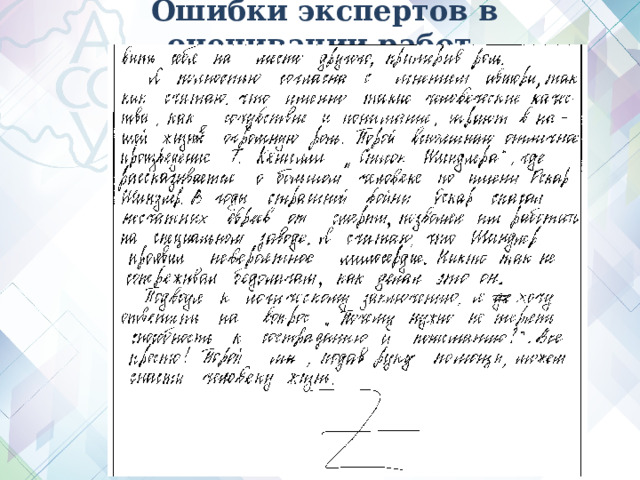 Ошибки экспертов в
оценивании работ
вить себя на место другого, примерив роль.
Я полностью согласна с мнением автора, так
как считаю, что именно такие человеческие качес-
тва, как сочувствие и понимание, играют в на-
шей жизни огромную роль. Порой вспоминаю отличное
произведение Т. Кенилли „Список Шиндлера", где
рассказывается о большом человеке по имени Оскар
Шиндлер. В годы страшной войны Оскар спасал
несчатных евреев от смерти, позволяя им работать
на специальном заводе. Я считаю, что Шиндлер
проявил невероятное милосердие. Никто так не
сопереживал бедолагам, как делал это он.
Подводя к логическому заключению, я хочу
ответить на вопрос „Почему нужно не терять
способность к состраданию и пониманию?". Все
просто! Порой мы, подав руку помощи, можем
спасти человеку жизнь.